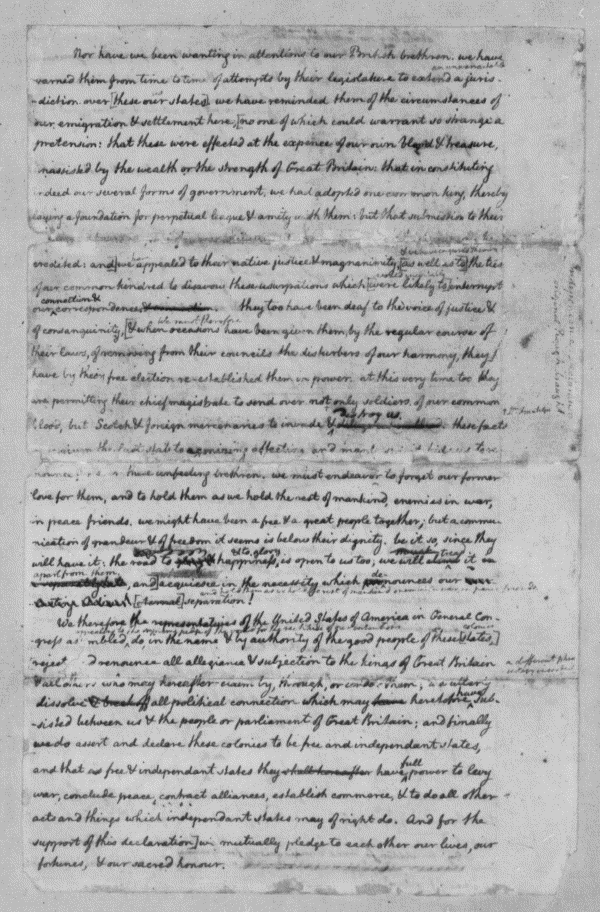 Nor have we been wanting in attentions to our British brethren. we have
warned them from time to time of attempts by their legislature to extend a juris-
an unwarrantable
-diction over [these our states] we have reminded them of the circumstances of
our emigration & settlement here, [no one of which could warrant so strange a
pretension: that these were effected at the expence of our own blood & treasure,
unassisted by the wealth or the strength of Great Britain: that in constituting
indeed our several forms of government, we had adopted one common king, thereby
laying a foundation for perpetual league & amity with them: but that submission to their
credited: and] we appealed to their native justice & magnanimity, [as well as to] the ties
of our common kindred to disavow these usurpations which [were likely to] interrupt
connection &
our correspondence. they too have been deaf to the voice of justice &
we must therefore
of consanguinity, [& when occasions have been given them, by the regular course of
their laws, of removing from their councils the disturbers of our harmony, they
have by their free election re-established them in power. at this very time too they
are permitting their chief magistrate to send over not only soldiers of our common
destroy us
blood, but Scotch & foreign mercenaries to invade & these facts
have given the last stab to agonizing affection, and manly spirit bids us to re-
nounce for ever these unfeeling brethren. we must endeavor to forget our former
love for them, and to hold them as we hold the rest of mankind, enemies in war,
in peace friends. we might have been a free & a great people together; but a commu-
nication of grandeur & of freedom it seems is below their dignity. be it so, since they
& to glory
will have it: the road to happiness, is open to us too; we will it
apart from them
and] acquiesce in the necessity which denounces our
[eternal] separation!
We therefore the representatives of the United States of America in General Con-
gress assembled, do in the name & by authority of the good people of these [states,]
reject and renounce all allegiance & subjection to the kings of Great Britain
& all others who may hereafter claim by, through, or under them; we utterly
dissolve & break off all political connection which may have heretofore sub-
-sisted between us & the people or parliament of Great Britain; and finally
we do assert and declare these colonies to be free and independant states,
and that as free & independant states they shall hereafter have full power to levy
war, conclude peace, contract alliances, establish commerce, & to do all other
acts and things which independant states may of right do. And for the
support of this declaration] we mutually pledge to each other our lives, our
fortunes, & our sacred honour.